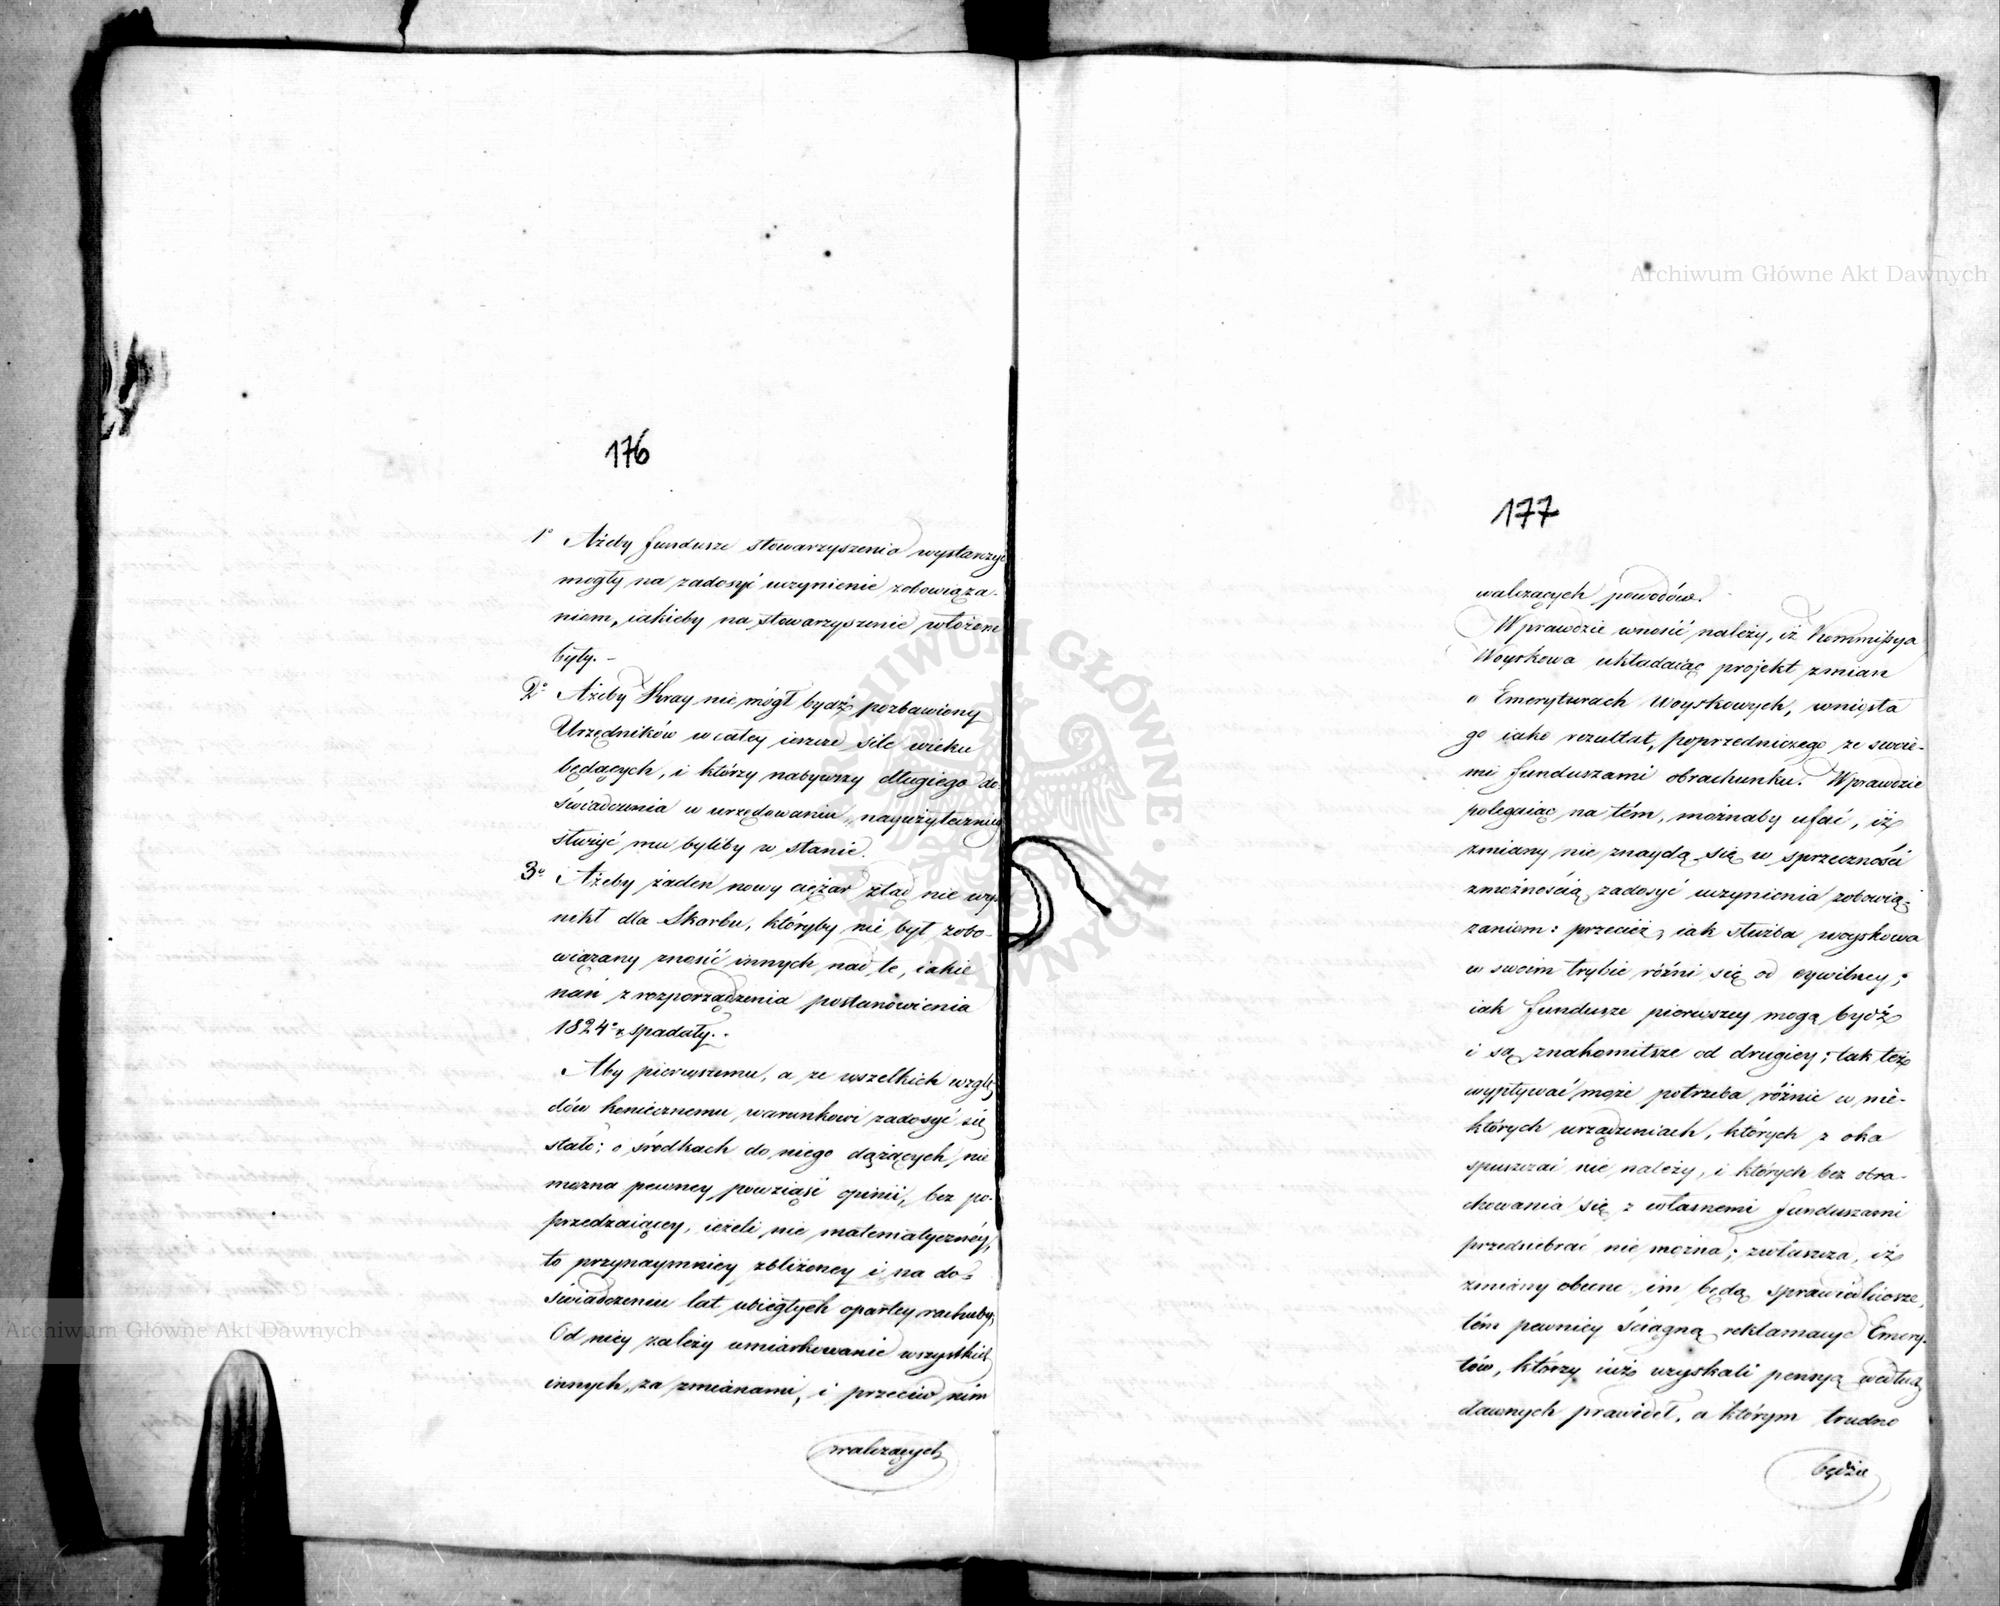 176
1° Ażeby fundusze stowarzyszenia wystarczyć
mogły na zadosyć uczynienie zobowiąza-
niom, iakieby na stowarzyszenie włożone
były. -
2° Ażeby Kray nie mógł bydź pozbawiony
Urzędników w całey ieszcze sile wieku
będących, i którzy nabywszy długiego do-
świadczenia w urzędowaniu, nayużyteczniey
służyć mu byliby w stanie.
3° Ażeby żaden nowy ciężar ztąd nie wy-
nikł dla Skarbu, któryby nie był zobo-
wiązany znosić innych nad te, iakie
nań z rozporządzenia postanowienia
1824° r. spadały. -
Aby pierwszemu, a ze wszelkich wzglę-
dów koniecznemu warunkowi zadosyć się
stało; o środkach do niego dążących, nie
można pewney powziąść opinii, bez po-
przedzaiącey, ieżeli nie matematyczney,
to przynaymniey zbliżoney i na do-
świadczeniu lat ubiegłych opartey rachuby.
Od niey zależy umiarkowanie wszystkich
innych, za zmianami, i przeciw nim
walczących
177
walczących powodów.
Wprawdzie wnosić należy, iż Kommissya
Woyskowa układaiąc projekt zmian
o Emeryturach Woyskowych, wniosła
go iako rezultat, poprzedniczego ze swoie-
mi funduszami obrachunku. Wprawdzie
polegaiąc na tém, możnaby ufać, iż
zmiany nie znaydą się w sprzeczności
z możnością zadosyć uczynienia zobowią-
zaniom: przecież, iak służba woyskowa
w swoim trybie różni się od cywilney;
iak fundusze pierwszey mogą bydź
i są znakomitsze od drugiey; tak też
wypływać może potrzeba różnic w nie-
których urządzeniach, których z oka
spuszczać nie należy, i których bez obra-
chowania się z własnemi funduszami
przedsiebrać nie można; zwłaszcza, iż
zmiany obecne im będą sprawiedliwsze,
tém pewniey ściągną reklamacye Emery-
tów, którzy iuż uzyskali pensyą według
dawnych prawideł, a którym trudno
będzie
Archiwum Główne Akt Dawnych
Archiwum Główne Akt Dawnych
ARCHIWUM GŁÓWNE AKT DAWNYCH